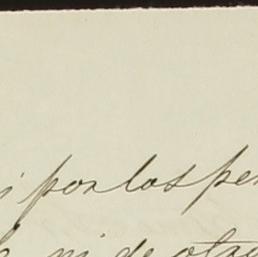 i por los per
ni de otra